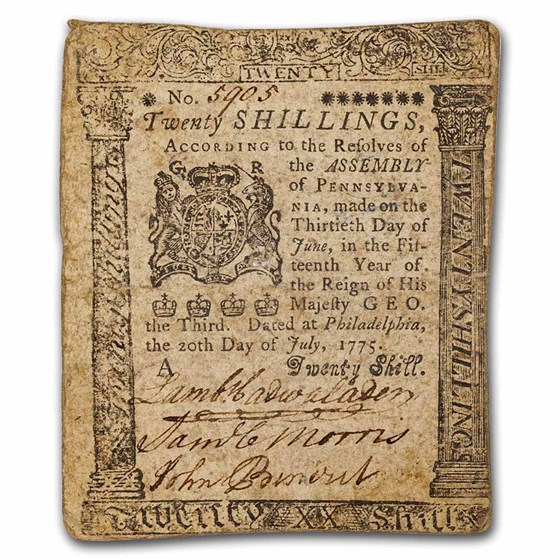 TWENTY SHI
No. 5905
Twenty SHILLINGS,
ACCORDING to the Resolves of
G R the ASSEMBLY
of PENNSYLVA-
NIA, made on the
Thirtieth Day of
June, in the Fif-
teenth Year of
the Reign of His
Majesty GEO.
the Third. Dated at Philadelphia,
the 20th Day of July, 1775.
A Twenty Shill.
Lamb Cadwalader
Sam C Morris
John
Twenty XX Shill
TWENTY SHILLINGS